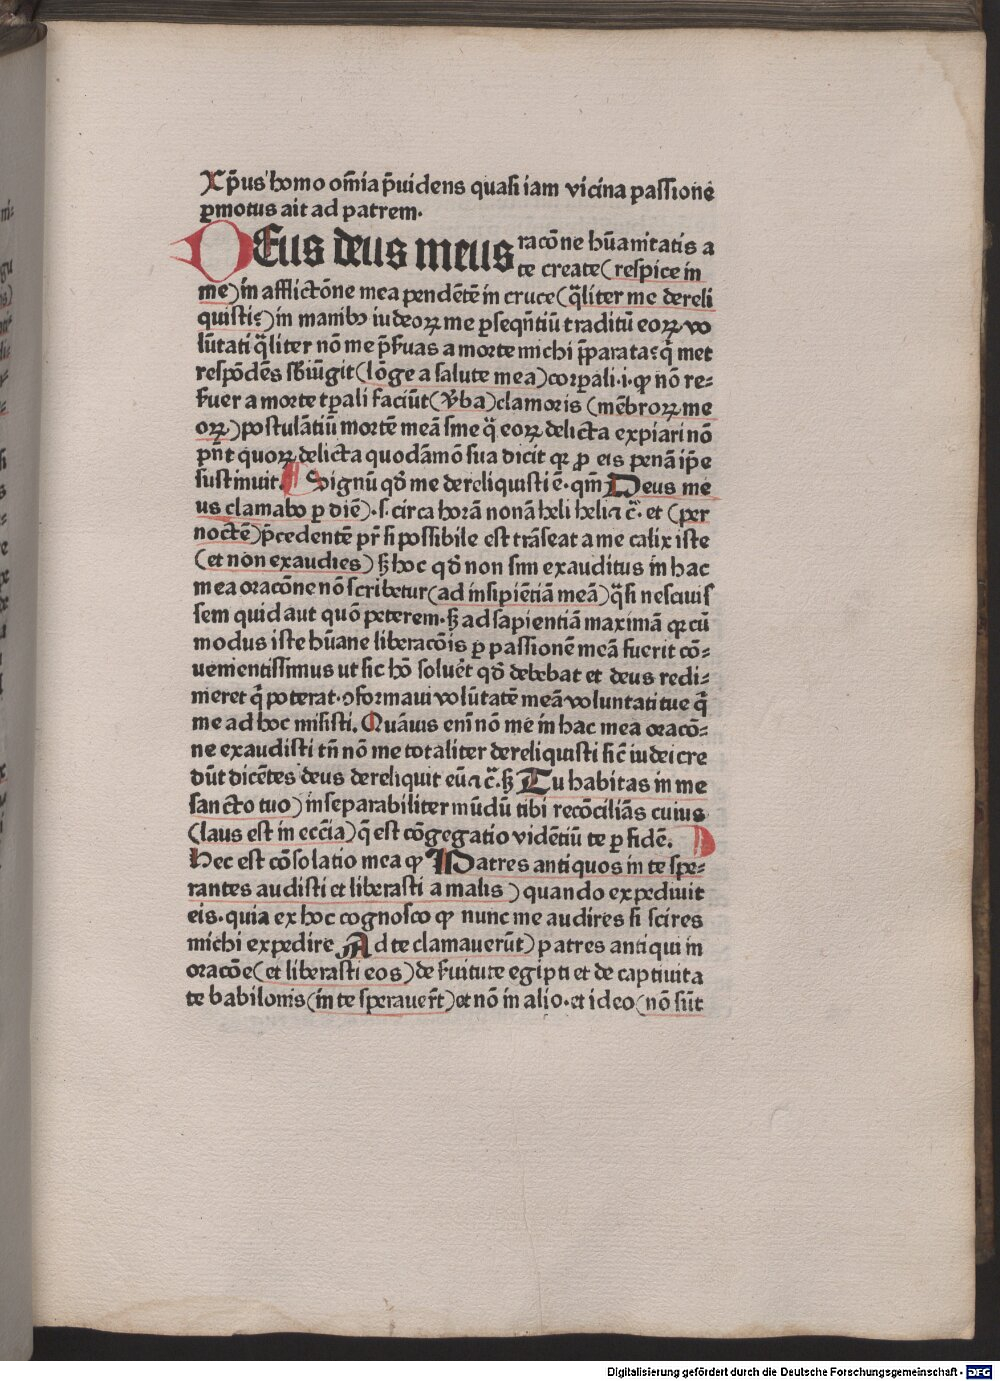 Xp̄us homo om̄ia p̄uidens quasi iam vicina passionē
ꝑmotus ait ad patrem.
DEus deus meus racōne hūanitatis a
te create (respice in
me) in afflictōne mea pendētē in cruce (q̄liter me dereli
quisti?) in manibꝰ iudeoꝝ me ꝑseqn̄tiū traditū eoꝝ vo
lūtati q̄liter nō me p̄seruas a morte michi p̄parata? q̄ met
respōdēs sbiūgit (lōge a salute mea) corꝑali .i. ꝙ nō re-
seruer a morte tꝑali faciūt (v̄ba) clamoris (mēbroꝝ me
oꝝ) postulātiū mortē meā sme q̄ eoꝝ delicta expiari nō
pn̄t quoꝝ delicta quodāmō sua dicit qꝛ ꝓ eis penā ip̄e
sustinuit. Signū qd̄ me dereliquisti ē. qm̄ Deus me
us clamabo ꝑ diē) .s. circa horā nonā heli heli ⁊c̄. et (per
noctē) p̄cedentē pr̄ si possibile est trāseat a me calix iste
(et non exaudies) sꝫ hoc qd̄ non sim exauditus in hac
mea oracōne nō scribetur (ad insipiētiā meā) q̄si nescius
sem quid aut quō peterem. sꝫ ad sapientiā maximā qꝛ cū
modus iste hūane liberacōis ꝑ passionē meā fuerit cō-
uenientissimus ut sic hō soluēt qd̄ debebat et deus redi-
meret q̄ poterat. ꝯformaui volūtatē meā voluntati tue q̄
me ad hoc misisti. Quāuis eni nō me in hac mea oracō-
ne exaudisti tn̄ nō me totaliter dereliquisti sic̄ iudei cre
dūt dicētes deus dereliquit eū ⁊c̄. sꝫ Tu habitas in me
sancto tuo) inseparabiliter mūdū tibi recōciliās cuius
(laus est in ecc̄ia) q̄ est cōgegatio vidētiū te ꝑ fidē.
Hec est cōsolatio mea ꝙ Patres antiquos in te spe-
rantes audisti et liberasti a malis) quando expediuit
eis. quia ex hoc cognosco ꝙ nunc me audires si scires
michi expedire Ad te clamauerūt) patres antiqui in
oracōe (et liberasti eos) de suitute egipti et de captiuita
te babilonis (in te sperauer̄t) et nō in alio. et ideo (nō sūt
Digitalisierung gefördert durch die Deutsche Forschungsgemeinschaft - DFG